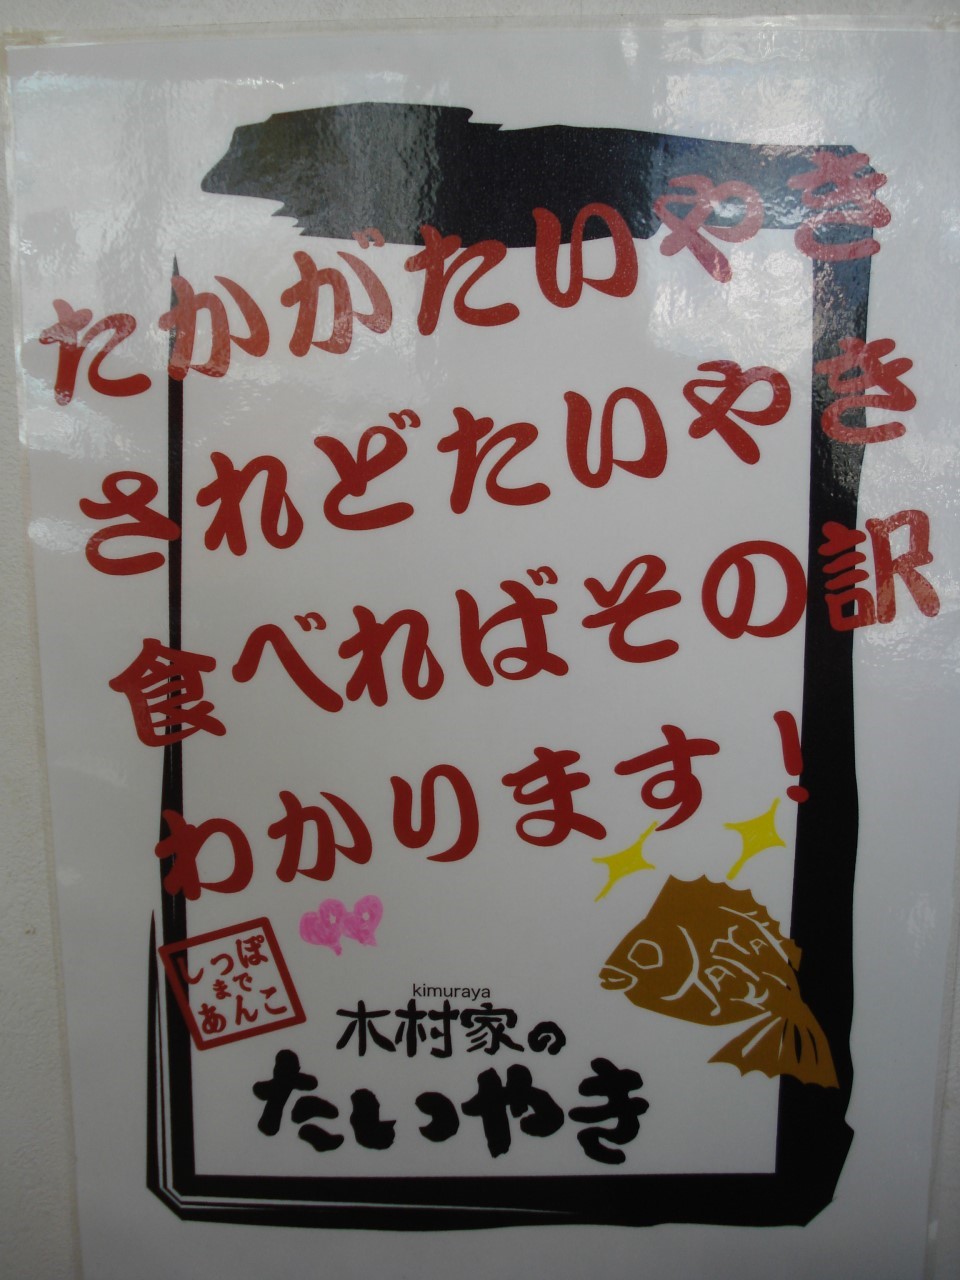 たかがたいやき
されどたいやき
食べればその訳
わかります!
しっぽ
まで
あんこ
kimuraya
木村家の
たいやき